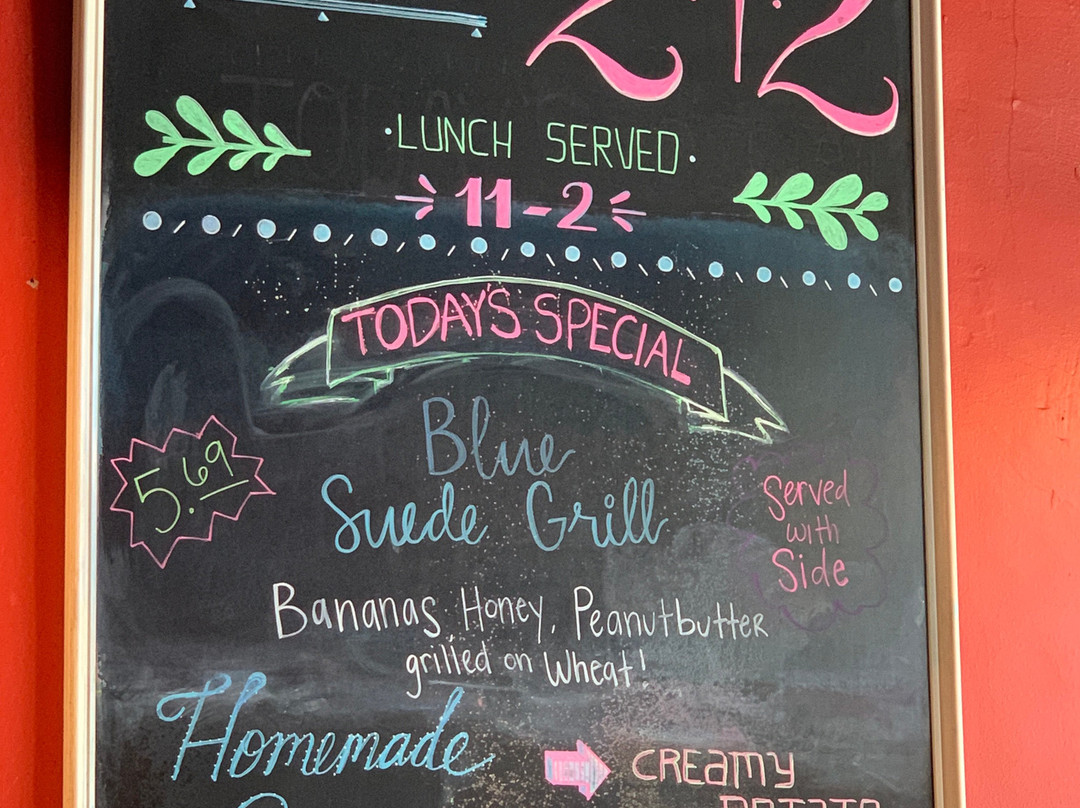 212
·LUNCH SERVED·
11-2
TODAY'S SPECIAL
5.69
Blue
Suede Grill
Served
with
Side
Bananas, Honey, Peanutbutter
grilled on Wheat!
Homemade
CREAMY
POTATO